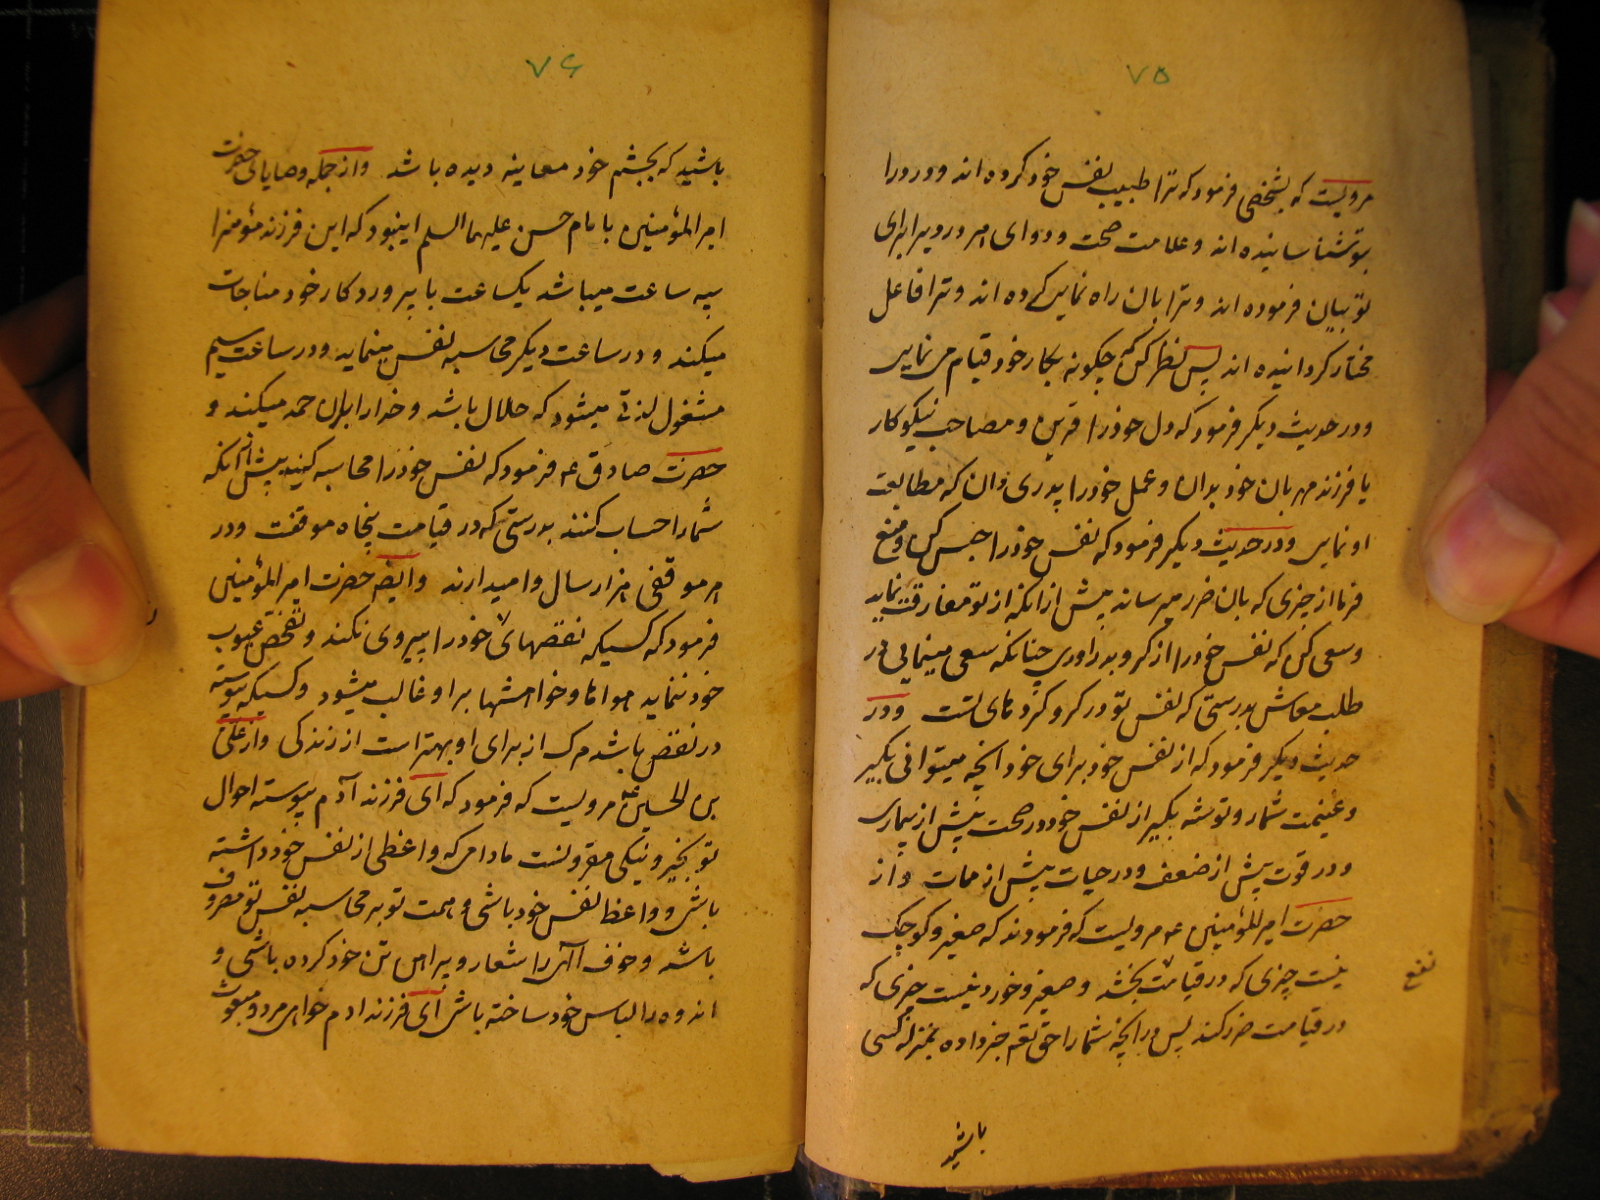 ۷۵
مرویست که بشخصی فرمود که ترا طبیب نفس خود کرده اند و درد را
بتو شناسانیده اند و علامت صحت و دوای هر درد را برای
تو بیان فرموده اند و ترا بان راه نمایی کرده اند و ترا فاعل
مختار کردانیده اند پس نظر کن که چکونه بکار خود قیام می نمایی
و در حدیث دیکر فرمود که دل خود را قرین و مصاحب نیکوکار
یا فرزند مهربان خود بدان و عمل خود را پدری دان که متابعت
او نمایی و در حدیث دیکر فرمود که نفس خود را حبس کن و منع
فرما از چیزی که بان ضرر میرساند پیش از انکه از تو مفارقت نماید
و سعی کن که نفس خود را از کرو بدر اوری چنانکه سعی مینمایی در
طلب معاش بدرستی که نفس تو در کرو کردهای تست و در
حدیث دیکر فرمود که از نفس خود برای خود انچه میتوانی بکیر
و غنیمت شمار و توشه بکیر از نفس خود در صحت پیش از بیماری
و در قوت پیش از ضعف و در حیات پیش از ممات و از
حضرت امیرالمؤمنین ع مرویست که فرمودند که صغیر و کوچک
نیست چیزی که در قیامت بخشد و صغیر و خورد نیست چیزی که
نفع
در قیامت ضرر کند پس در انچه شما را حق تعم خبر داده بمنزله کسی
باشید
۷۶
باشید که بچشم خود معاینه دیده باشد و از جمله وصایای حضرت
امیرالمؤمنین با امام حسن علیهما السلم این بود که این فرزند مؤمن را
سه ساعت میباشد یکساعت با پروردکار خود مناجات
میکند و در ساعت دیکر محاسبه نفس مینماید و در ساعت سیم
مشغول لذتی میشود که حلال باشد و خدا را بران حمد میکند و
حضرت صادق ع فرمود که نفس خود را محاسبه کنید پیش از آنکه
شما را حساب کنند بدرستی که در قیامت پنجاه موقفست و در
هر موقفی هزار سال وا میدارند و ایضا حضرت امیرالمؤمنین
فرمود که کسیکه نقصهای خود را پیروی نکند و تفحص عیوب
خود ننماید هواها و خواهشها براو غالب میشود و کسیکه پیوسته
در نقص باشد مرک از برای او بهتر است از زندکی و از علی
بن الحسین ع مرویست که فرمود که ای فرزند آدم پیوسته احوال
تو بخیر و نیکی مقرونست مادامی که واعظی از نفس خود داشته
باشی و واعظ نفس خود باشی و همت تو بر محاسبه نفس تو مصروف
باشد و خوف الهی را شعار و پیراهن تن خود کرده باشی و
اندوه را لباس خود ساخته باشی ای فرزند ادم خواهی مرد و مبعوث